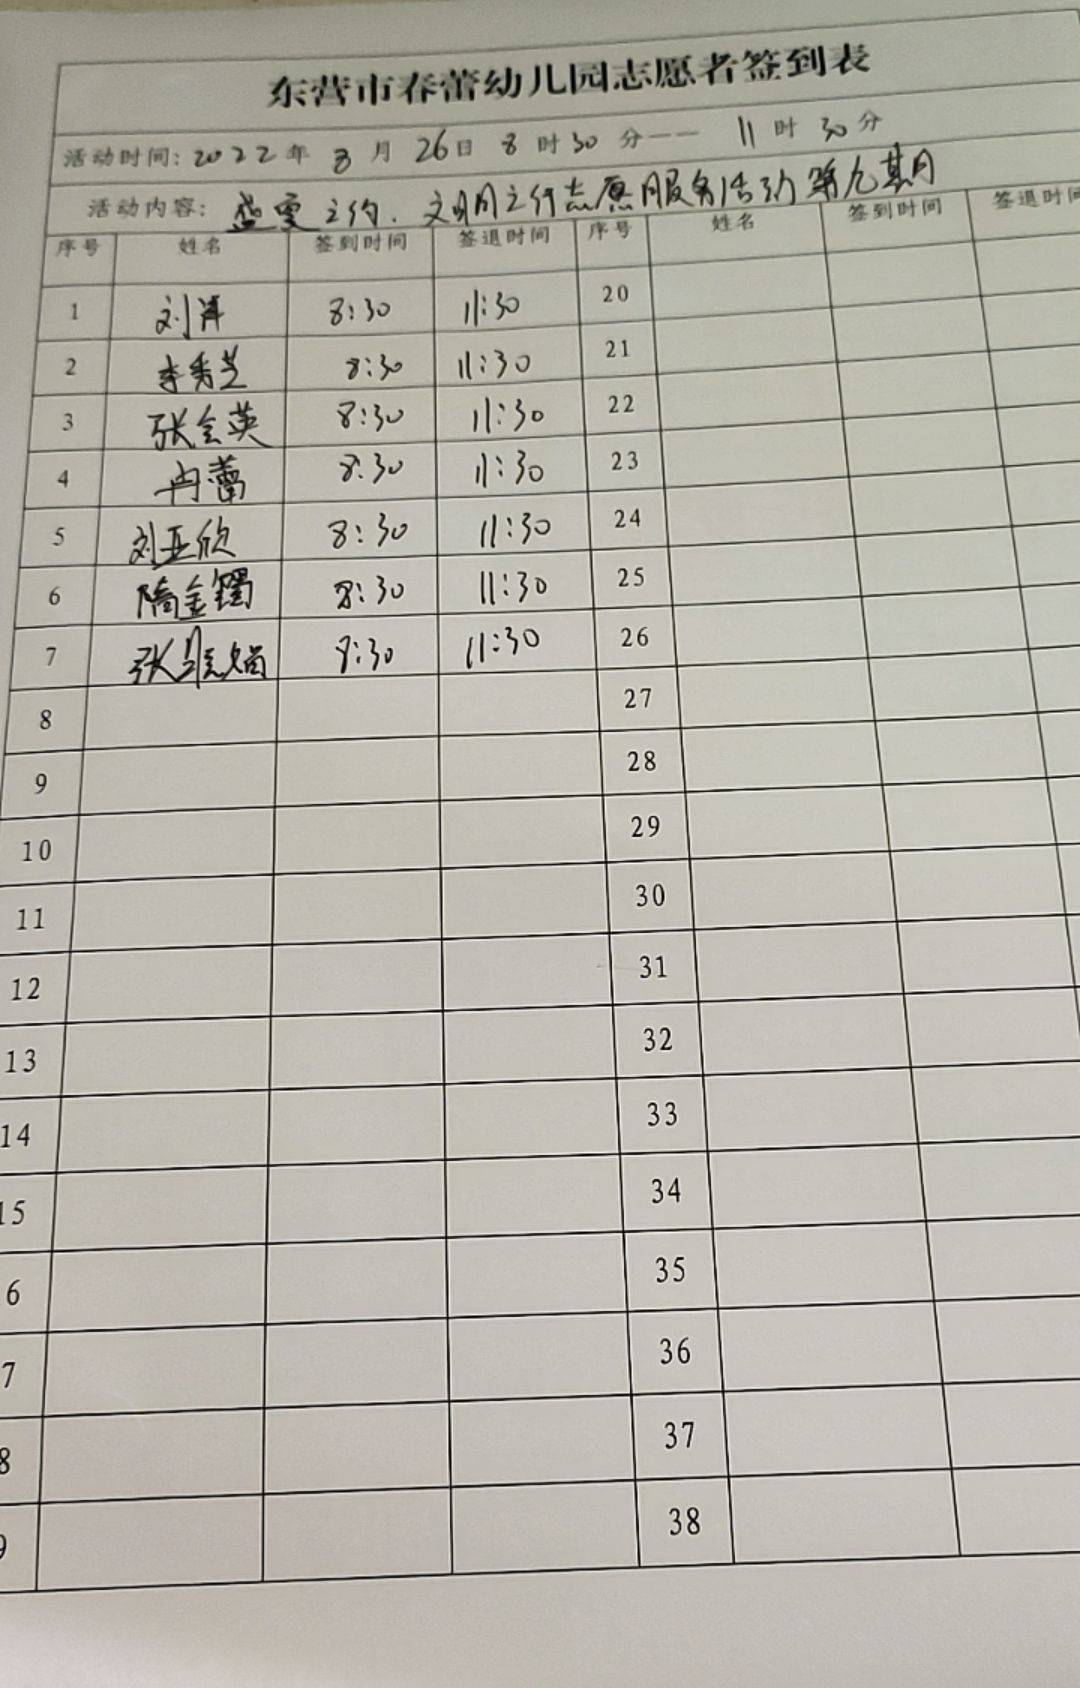 东营市春蕾幼儿园志愿者签到表
活动时间：2022年8月26日8时30分——11时30分
活动内容：盛夏之约．文明之行志愿服务活动第九期
序号 姓名 签到时间 签退时间 序号 姓名 签到时间 签退时间
1 刘洋 8:30 11:30 20
2 李秀芝 8:30 11:30 21
3 张会英 8:30 11:30 22
4 冉蕾 8:30 11:30 23
5 刘亚欣 8:30 11:30 24
6 隋金镯 8:30 11:30 25
7 张 8:30 11:30 26
8 27
9 28
10 29
11 30
12 31
13 32
14 33
15 34
6 35
7 36
8 37
9 38